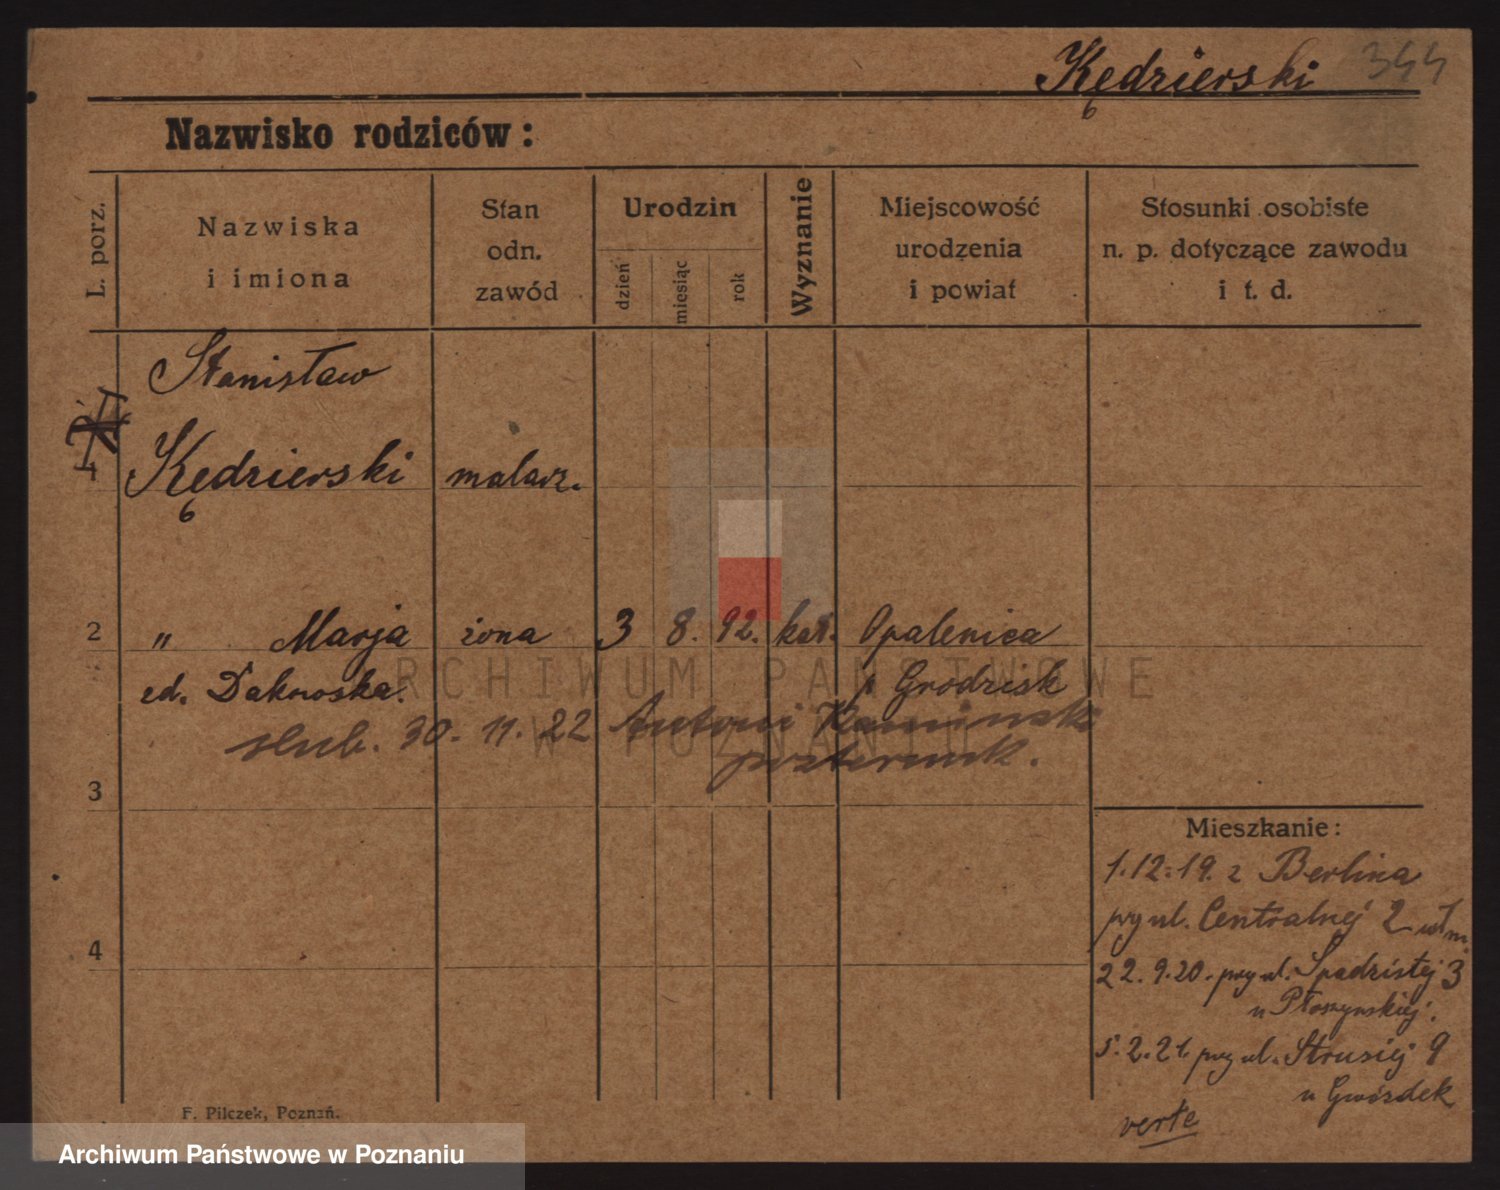 Kędzierski 344
Nazwisko rodziców:
L. porz.
Nazwiska
i imiona
Stan
odn.
zawód
Urodzin
dzień
miesiąc
rok
Wyznanie
Miejscowość
urodzenia
i powiat
Stosunki osobiste
n. p. dotyczące zawodu
i t. d.
Stanisław
1 Kędzierski malarz.
2 " Marja żona 3 8. 92. kat. Opalenica
p Grodzisk
ślub. 30. 11. 22 Antoni Kamiński
posterunk.
3
4
Mieszkanie:
1.12.19. z Berlina
przy ul. Centralnej 2
22.9.20. przy ul. Spadzistej 3
u
5.2.21. przy ul. Strusiej 9
u Gwózdek
verte
F. Pilczek, Poznań.
ARCHIWUM PAŃSTWOWE
W POZNANIU
Archiwum Państwowe w Poznaniu